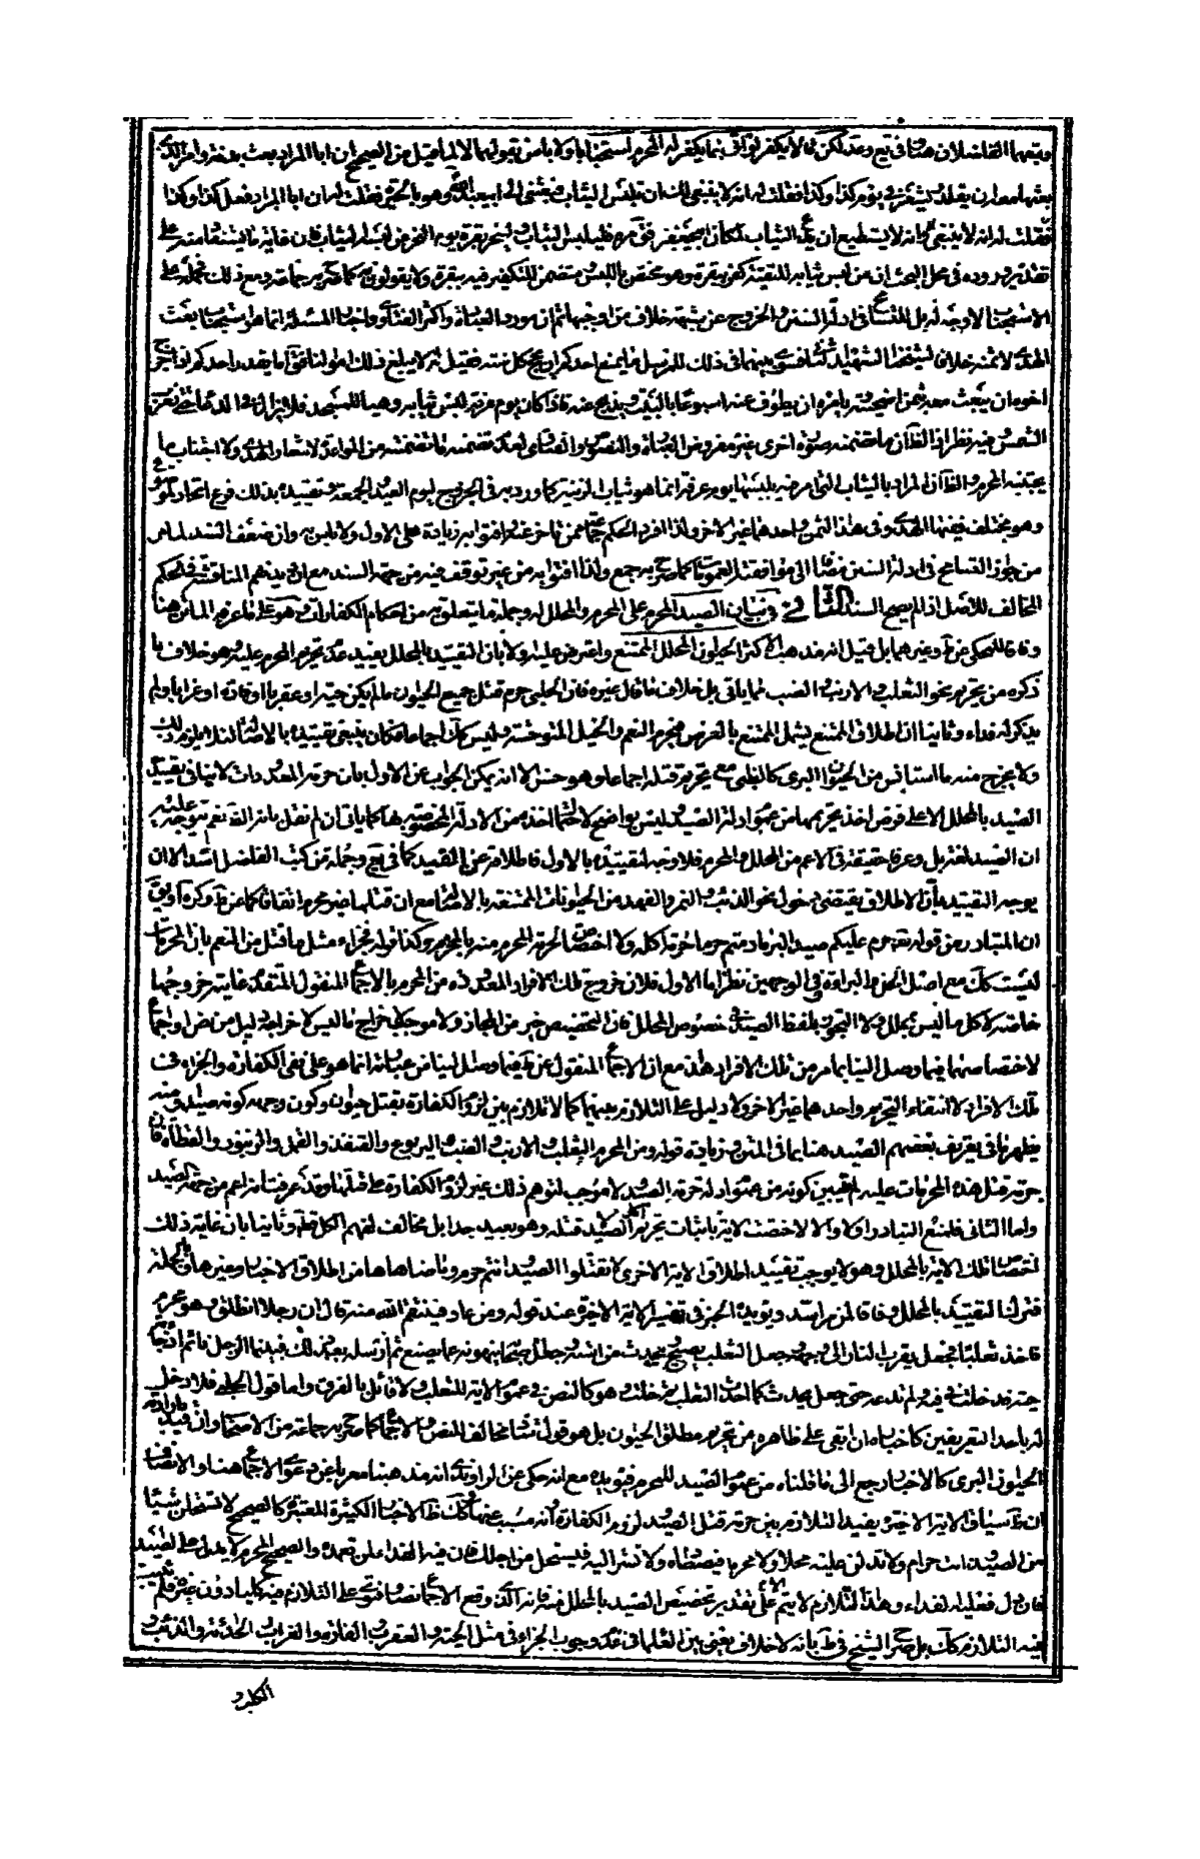 وتبعهما الفاضلان هنا في يع وعد لكن قالا يكفر لو اتى بما يكفر له المحرم استحبابا ولا بأس بقولهما لا لما قيل من الصحيح ان ابا المراد بعث بدنة وامر الذي
بعثها معه ان يقلد ويشعر في يوم كذا وكذا فقلت له انه لا ينبغي لك ان تلبس الثياب فبعثني الى ابي عبد الله ع وهو بالحيرة فقلت له ان ابا المراد فعل كذا وكذا
فقلت له انه لا ينبغي وانه لا يستطيع ان يدع الثياب لمكان ابي جعفر فقال مره فليلبس الثياب ولينحر بقرة يوم النحر عن لبسه الثياب فان غايته ما يستفاد منه على
تقدير وروده في محل البحث ان من لبس ثيابه للتقية كفر ببقرة وهو مختص باللبس متضمن للتكفير فيه ببقرة ولا يقولون به كما صرح به جماعة ومع ذلك فحمله على
الاستحباب لا وجه له بل للتسامح في ادلة السنن والخروج عن شبهة خلاف من اوجبها ثم ان مورد العبارة واكثر الفتاوى واخبار المسئلة انما هو استحباب بعث
الهدي لا ثمنه خلافا لشيخنا الشهيد الثاني فسوى بينهما في ذلك للمرسل ما يمنع احدكم ان يحج كل سنة فقيل له لا يبلغ ذلك اموالنا فقال اما يقدر احدكم اذا خرج
اخوه ان يبعث معه بثمن اضحيته ويأمره ان يطوف عنه اسبوعا بالبيت ويذبح عنه فاذا كان يوم عرفة لبس ثيابه وتهيأ للمسجد فلا يزال في الدعاء حتى تغرب
الشمس وفيه نظر اذ الظاهر ان ما تضمنه صورة اخرى غير مفروض العبارة والنصوص والفتاوى لعدم تضمنه ما تضمنته من المواعدة لاشعار الهدي ولا اجتناب ما
يجتنبه المحرم والظاهر ان المراد بالثياب التي امر فيه بلبسها يوم عرفة انما هو ثياب الزينة كما ورد به في الخروج ليوم العيد والجمعة وتقييده بذلك فرع اتحاد مورد
وهو مختلف ففيها الهدي وفي هذا الثمن واحدهما غير الاخر ولذا افرد الحكم جماعة ممن تأخر عنه وافتوا به زيادة على الاول ولا بأس به وان ضعف السند لما مر
من جواز التسامح في ادلة السنن مضافا الى موافقته العمومات كما صرح به جمع ولذا افتوا به من غير توقف فيه من جهة السند مع ان ديدنهم المناقشة في الحكم
المخالف للاصل اذا لم يصح السند الثاني في بيان الصيد المحرم على المحرم والمحلل له وجملة ما يتعلق به من احكام الكفارات وهو على ما عرفه الماتن هنا
ذكره من تحريم نحو الثعلب والارنب والضب لما يأتي بل خلاف ما قال غيره فان الحلبي حرم قتل جميع الحيوان ما لم يكن حية او عقربا او فأرة او غرابا ولم
يذكر له فداء وثانيا ان اطلاق الممتنع يشمل الممتنع بالعرض فيحرم النعم والخيل المتوحشة وليس كذلك اجماعا فكان ينبغي تقييده بالاصالة
ولا يخرج منه ما استأنس من الحيوان البري كالظبي مع تحريم قتله اجماعا وهو حسن الا انه يمكن الجواب عن الاول بان حرمة المعدودات لا ينافي تقييد
الصيد بالمحلل الا على فرض اخذ تحريمها من عموم ادلة الصيد وليس بواضح لاحتمال اخذه من الادلة المخصوصة بها كما يأتي ان لم نقل بانه الظ نعم يتوجه عليه
ان الصيد لغة بل وعرفا حقيقة في الاعم من المحلل والمحرم فلا وجه لتقييده بالاول فاطلاقه عن القيد كما في يع وجملة من كتب الفاضل اسد الا ان
يوجه التقييد بان الاطلاق يقتضي دخول نحو الذئب والنمر والفهد من الحيوانات الممتنعة بالاصالة مع ان قتلها غير محرم اتفاقا كما عن ط وكره او يق
ان المتبادر من قوله تع حرم عليكم صيد البر ما دمتم حرما حرمة اكله ولا اختصاص لحرمة المحرم منه بالمحرم وكذا قوله فجزاء مثل ما قتل من النعم بان المحرمات
ليست كك مع اصل الحل والبراءة وفي الوجهين نظر اما الاول فلان خروج تلك الافراد المعدودة من المحرم بالاجماع المنقول المتقدم غايته خروجها
خاصة لا كل ما ليس بمحلل ولا التجوز بلفظ الصيد في خصوص المحلل فان التخصيص خير من المجاز ولا موجبا لاخراج ما ليس لاخراجه دليل من نص او اجماع
لاختصاصهما فيما وصل الينا بما مر من تلك الافراد هذا مع ان الاجماع المنقول عن ط فيما وصل لينا من عبارته انما هو على نفي الكفارة والجزاء في
تلك الافراد لا انتفاء التحريم واحدهما غير الاخر ولا دليل على التلازم بينهما كما لا تلازم بين لزوم الكفارة بقتل حيوان وكون وجهه كونه صيدا ومنه
يظهر ما في تعريف بعضهم الصيد هنا بما في المتن وزيادة قوله ومن المحرم الثعلب والارنب والضب واليربوع والقنفذ والقمل والزنبور والعظاءة فان
حرمة قتل هذه المحرمات عليه لم يتبين كونه من عموم ادلة حرمة الصيد ولا موجب لتوهم ذلك غير لزوم الكفارة على قتلها وقد عرفت انه اعم من جهة الصيد
واما الثاني فلمنع التبادر اولا والا لاختصت الاية باثبات تحريم اكل الصيد لا قتله وهو بعيد جدا بل مخالف لفهم الكل قطعا وثانيا بان غاية ذلك
اختصاص تلك الاية بالمحلل وهو لا يوجب تقييد اطلاق الاية الاخرى لا تقتلوا الصيد وانتم حرم وما ضاهاها من اطلاق الاخبار وغيرها وبالجملة
فترك التقييد بالمحلل وفاقا لمن مر اسد ويؤيده الخبر في تفسير الاية الاخيرة عند قوله ومن عاد فينتقم الله منه قال ان رجلا انطلق وهو محرم
فاخذ ثعلبا فجعل يقرب النار الى وجهه وجعل الثعلب يصيح ويحدث من استه وجعل اصحابه ينهونه عما يصنع ثم ارسله بعد ذلك فبينما الرجل نائم اذ جاءته
حية فدخلت في فيه فلم تدعه حتى جعل يحدث كما احدث الثعلب ثم خلت عنه وهو كالنص في عموم الاية للثعلب ولا قائل بالفرق واما قول الحلبي فلا دخل
له باحد التعريفين كاخباره ان ابقي على ظاهره من تحريم مطلق الحيوان بل هو قول ثالث مخالف للنص والاجماع كما صرح به جماعة من الاصحاب وان قيد
الحيوان بالبري كالاخبار رجع الى ما قلناه من عموم الصيد للمحرم فيؤيده مع انه حكي عن الراوندي انه مذهبنا معربا عن دعوى الاجماع هنا والانصاف
ان ظ سياق الاية الاخيرة يفيد التلازم بين حرمة قتل الصيد ولزوم الكفارة وانه مسبب عنها وكذلك ظ الاخبار الكثيرة المعتبرة كالصحيح لا تستحلن شيئا
من الصيد وانت حرام ولا تدلن عليه محلا ولا محرما فيصطاده ولا تشر اليه فيستحل من اجلك فان فيه الفداء لمن تعمده والصحيح المحرم لا يدل على الصيد
فان دل فقتل فعليه الفداء وهذا التلازم لا يتم الا على تقدير تخصيص الصيد بالمحلل منه فانه الذي وقع الاجماع نصا وفتوى على التلازم فيه كليا دون غيره فلم يثبت
فيه التلازم كك بل صرح الشيخ في ط بانه لا خلاف يعني بين العلماء في عدم وجوب الجزاء في مثل الحية والعقرب والفأرة والغراب والحدأة والذئب و
الكلب و